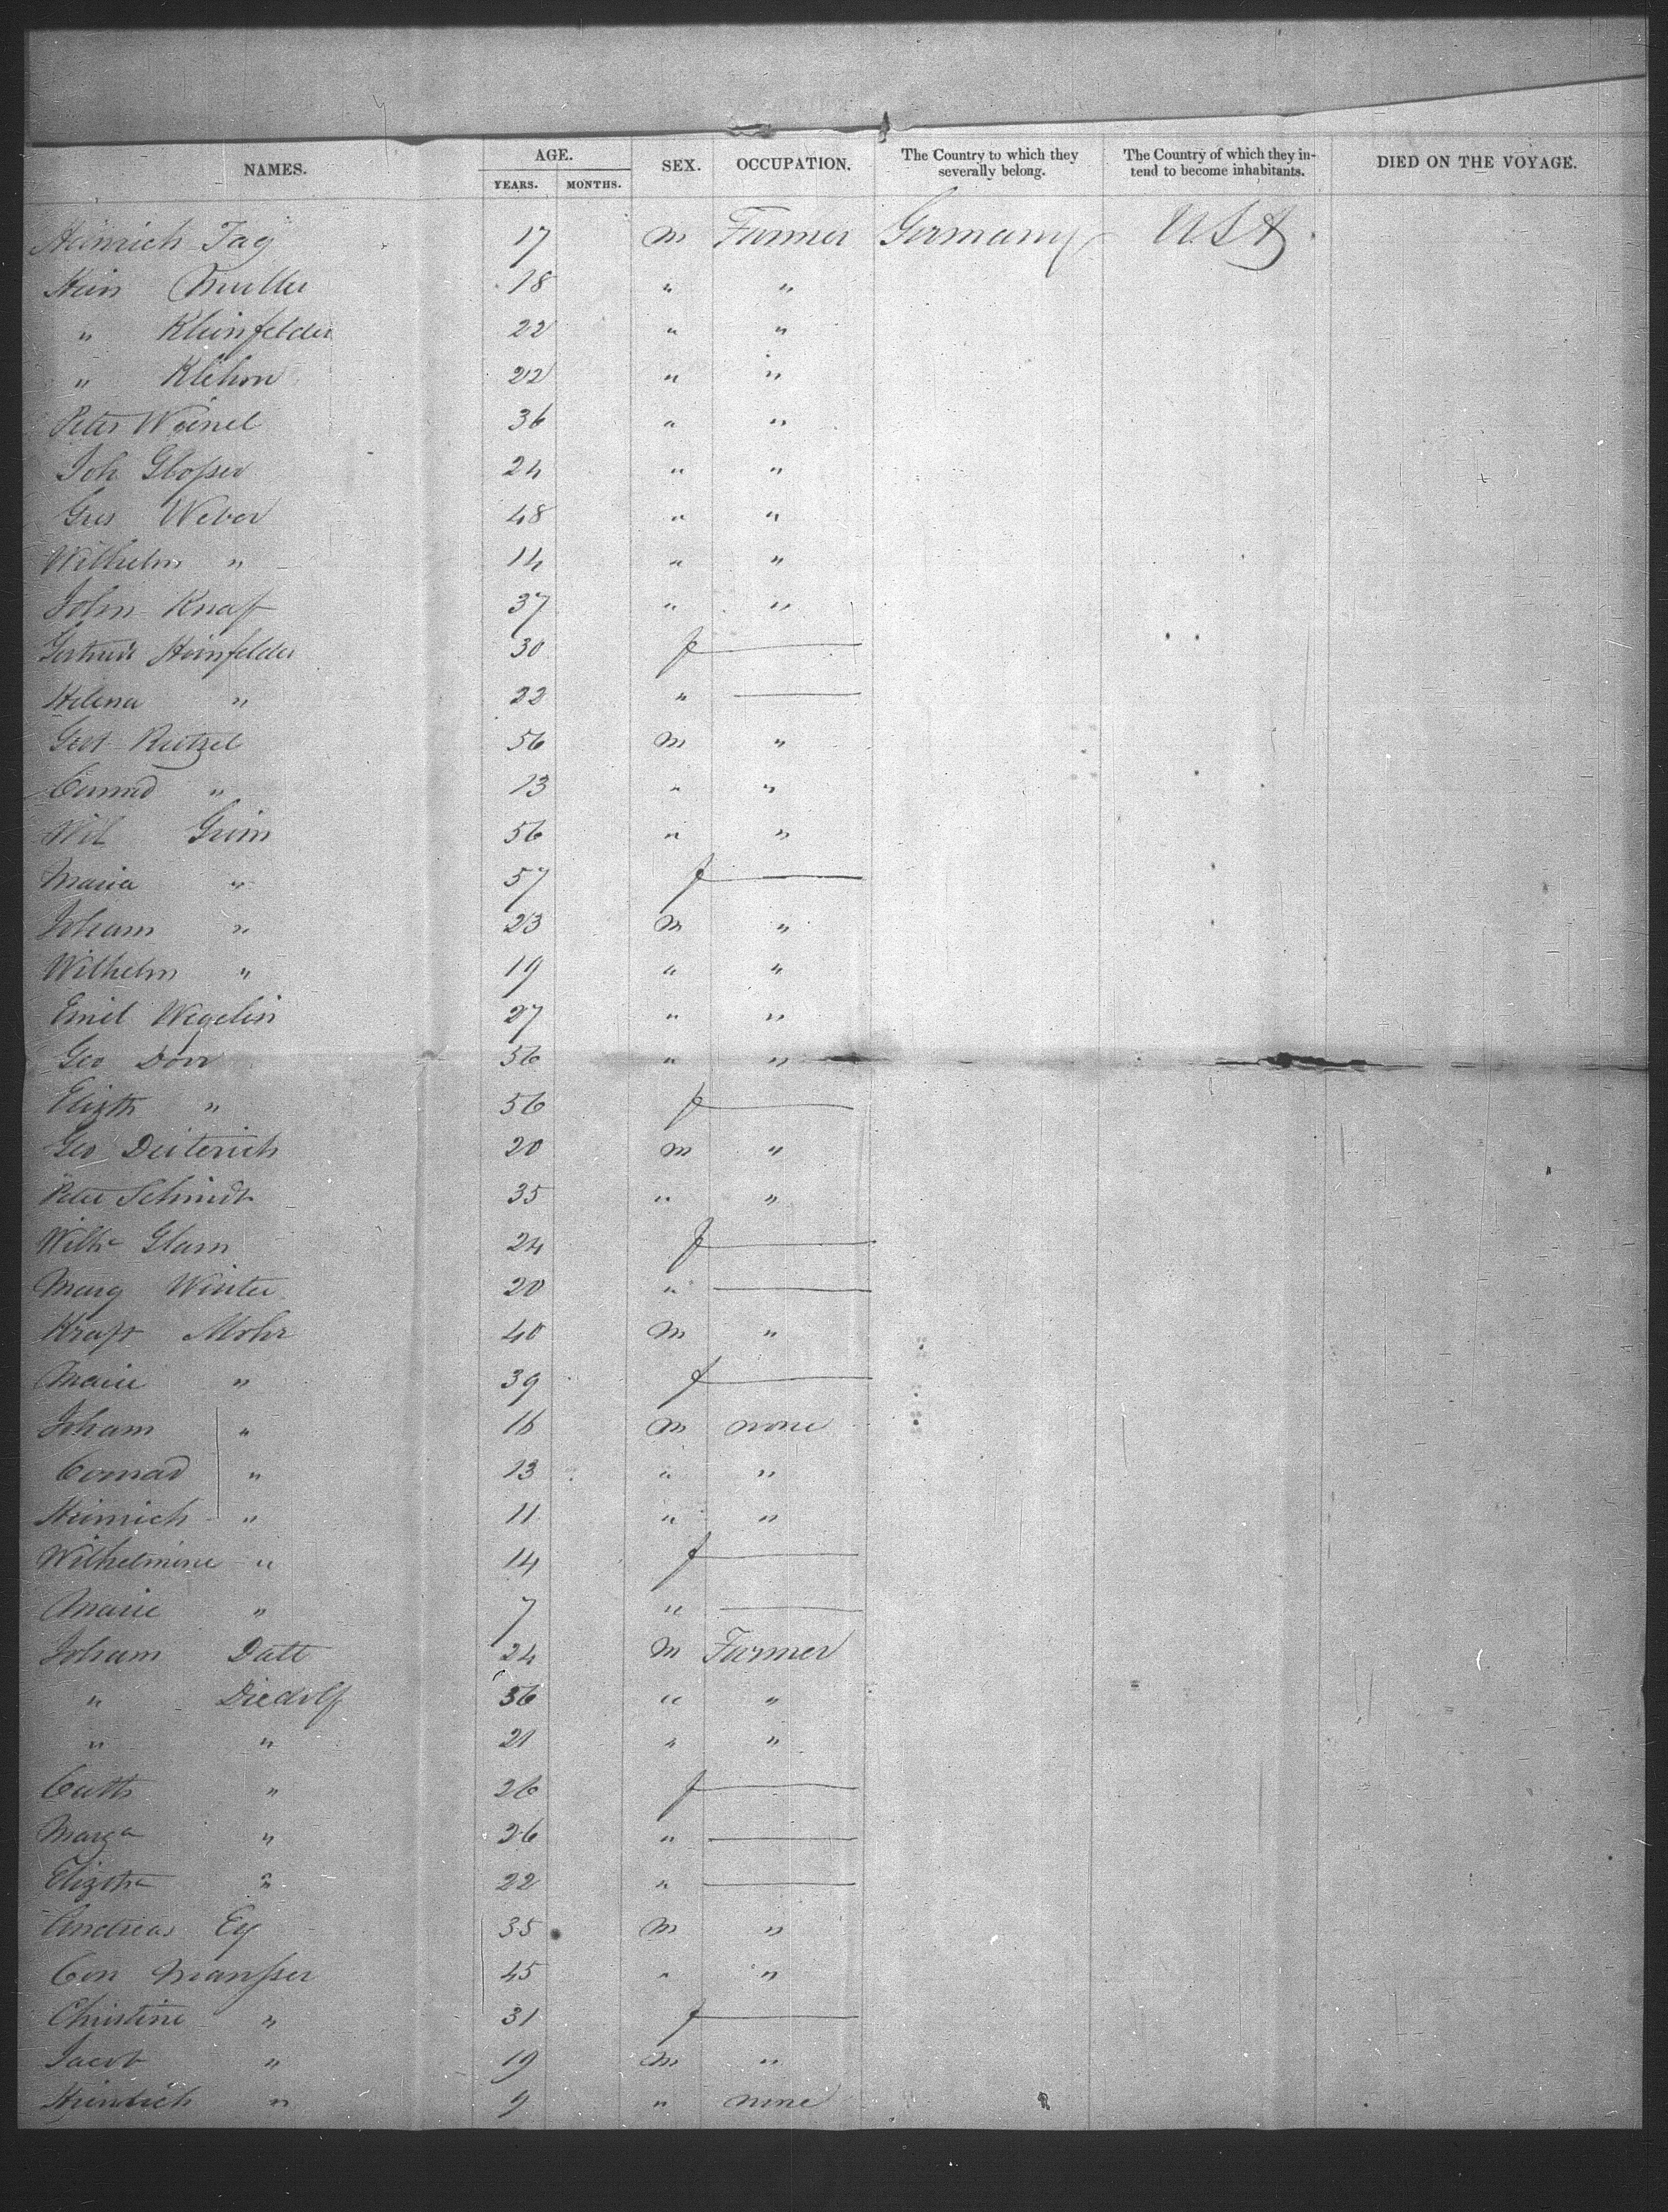 NAMES. AGE. YEARS. MONTHS. SEX. OCCUPATION. The Country to which they severally belong. The Country of which they intend to become inhabitants. DIED ON THE VOYAGE.
Heinrich Fag 17 m Farmer Germany U.S.A.
Hein Muller 18 " "
" Kleinfelder 22 " "
" Klehm 22 " "
Peter Weinel 36 " "
Joh Glosser 24 " "
Geo Weber 48 " "
Wilhelm " 14 " "
John Knaf 37 " "
Gertrude Heinfelder 30 f —
Helena " 22 " —
Gert Reitzel 56 m "
Conrad " 13 " "
Wil Grim 56 " "
Maria " 57 f —
Joham " 23 m "
Wilhelm " 19 " "
Emil Wegelin 27 " "
Geo Dorr 56 " "
Elizth " 56 f —
Geo Deiterich 20 m "
Peter Schmidt 35 " "
Wilhe Glam 24 f —
Marg Winter 20 " —
Kraft Mohr 40 m "
Marie " 39 f —
Joham " 16 m none
Conrad " 13 " "
Heinrich " 11 " "
Wilhelmine " 14 f —
Marie " 7 " —
Joham Datt 24 m Farmer
" Diedolf 56 " "
" " 21 " "
Cath " 26 f —
Marga " 26 " —
Elizth " 22 " —
Andreas Ey 35 m "
Con Mansser 45 " "
Christine " 31 f —
Jacob " 19 m "
Heinrich " 9 " none